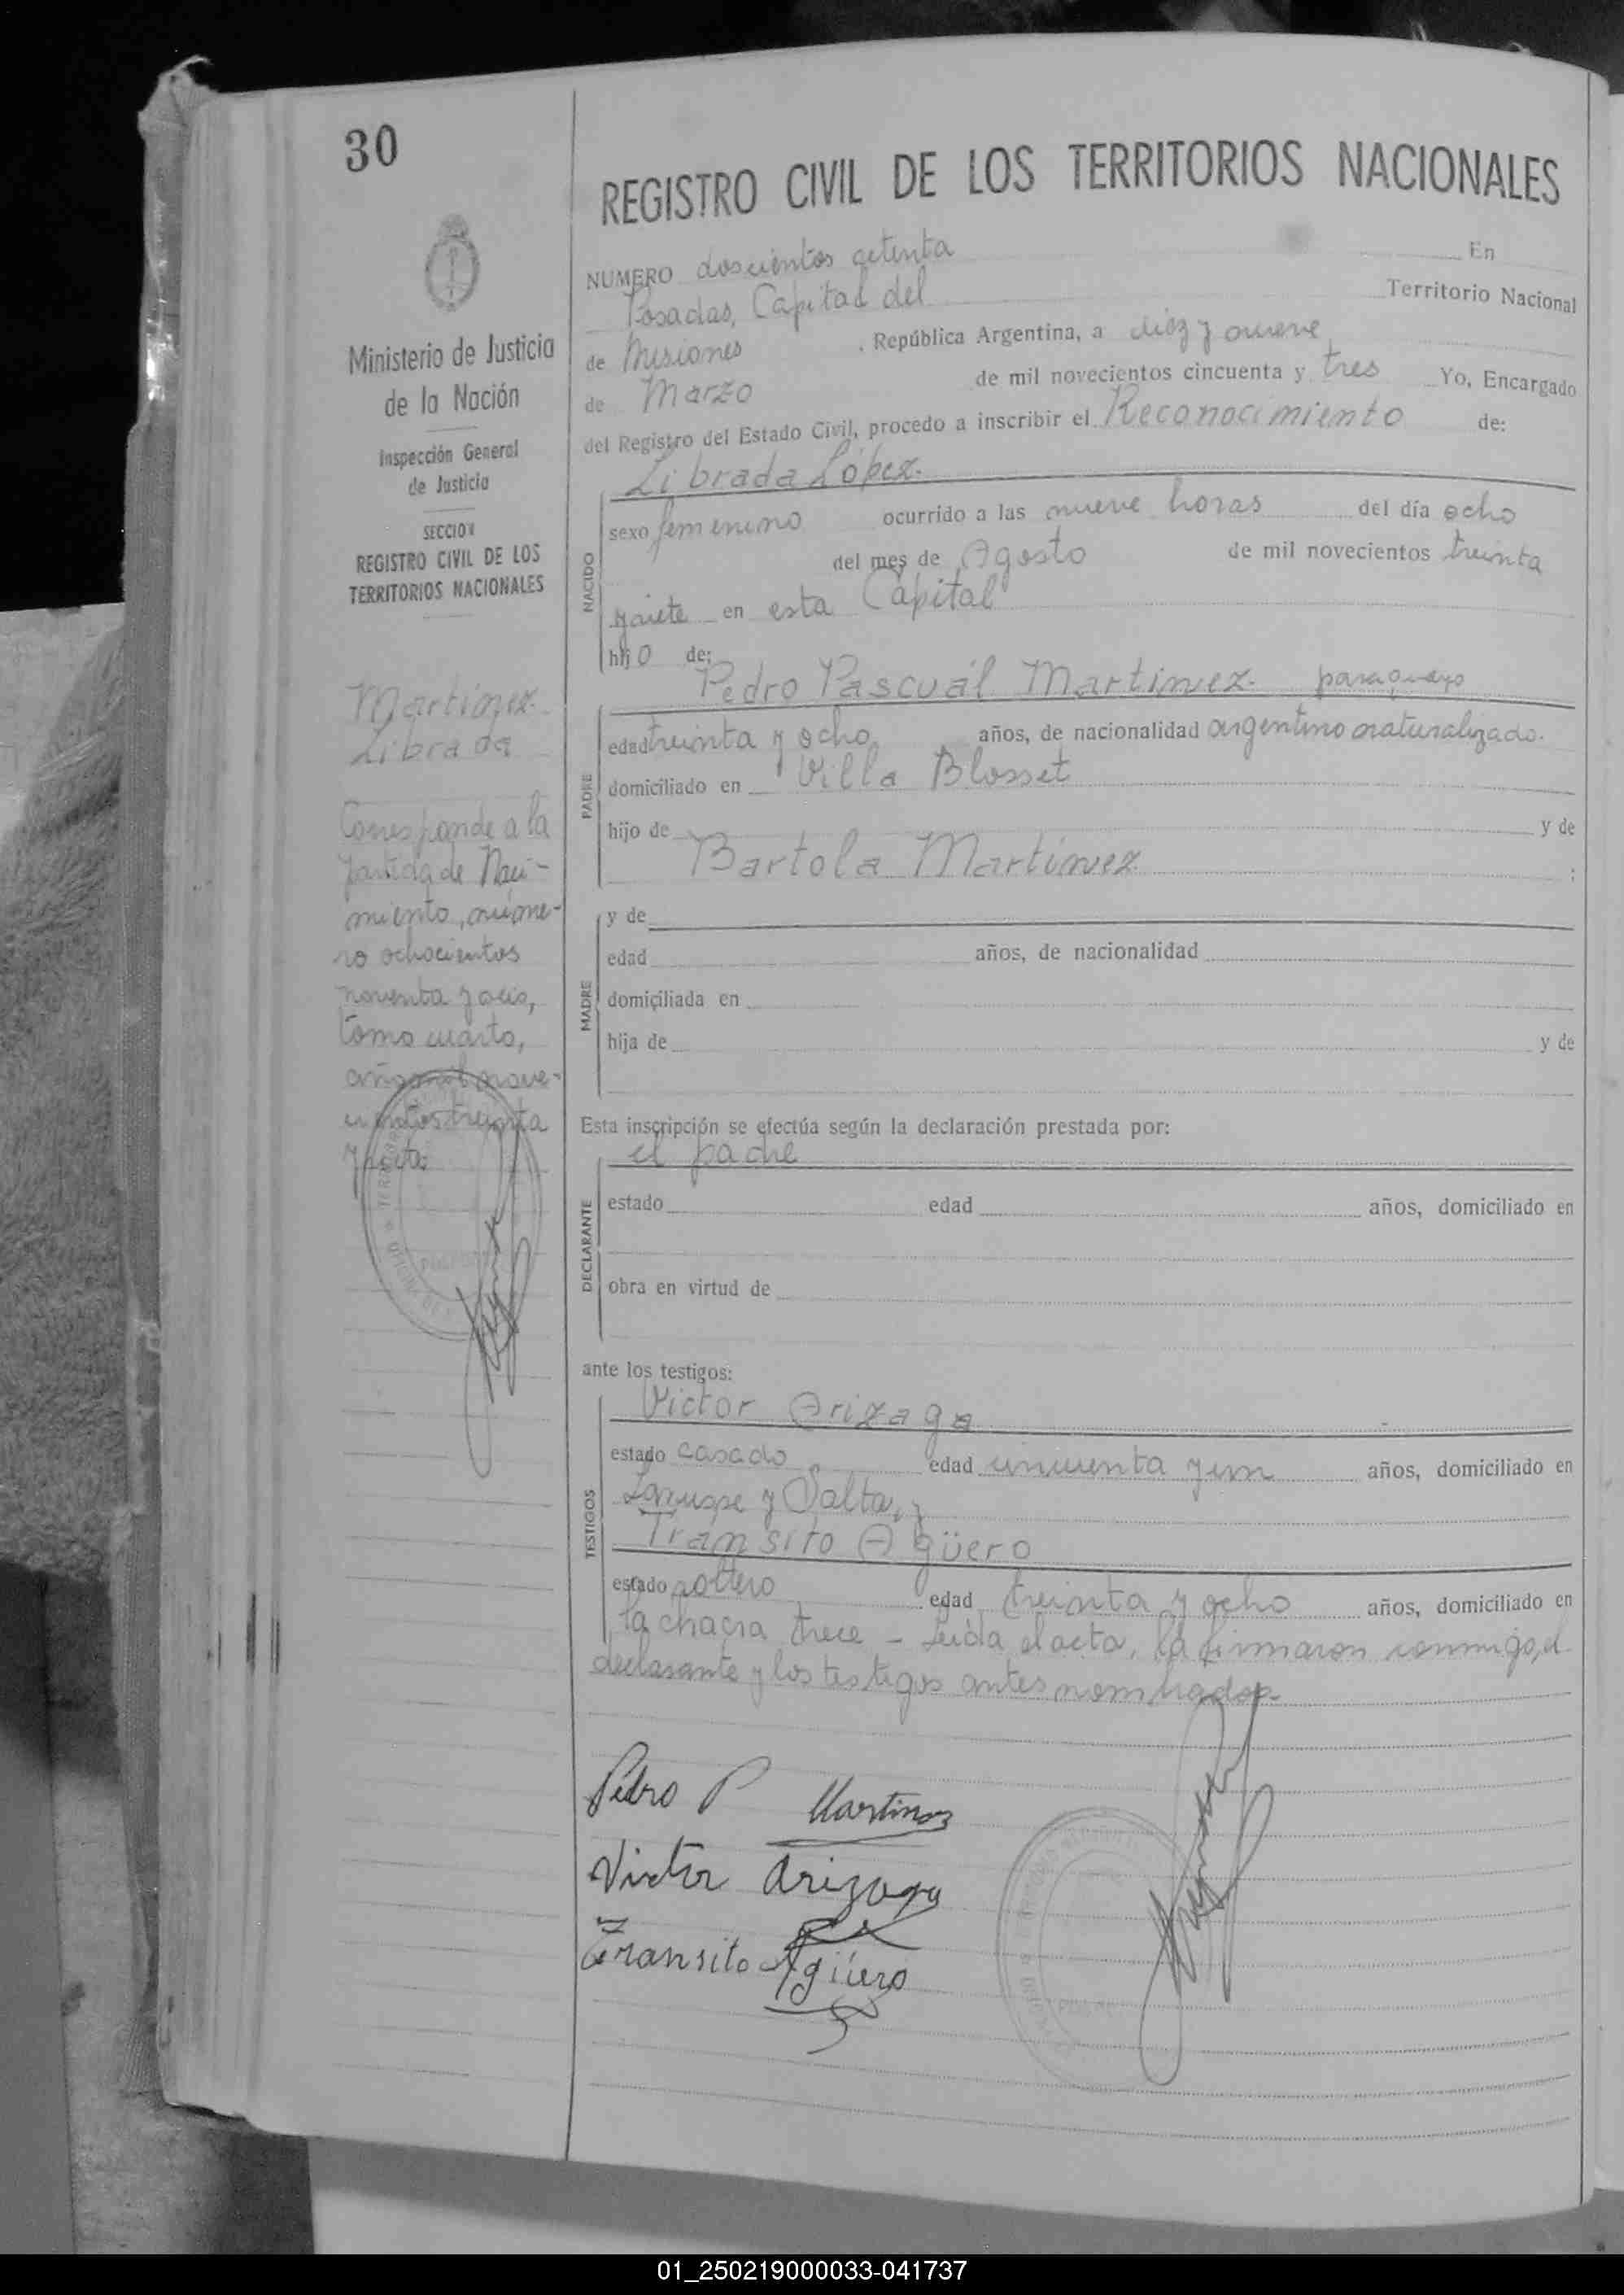 30
REGISTRO CIVIL DE LOS TERRITORIOS NACIONALES
Ministerio de Justicia
de la Nación
Inspección General
de Justicia
SECCION
REGISTRO CIVIL DE LOS
TERRITORIOS NACIONALES
Martinez
Librada
Corresponde a la
partida de Naci-
miento, núme-
ro ochocientos
noventa y seis,
tomo cuarto,
año mil nove-
cientos treinta
y siete
NUMERO doscientos setenta En
Posadas, Capital del Territorio Nacional
de Misiones , República Argentina, a diez y nueve
de Marzo de mil novecientos cincuenta y tres Yo, Encargado
del Registro del Estado Civil, procedo a inscribir el Reconocimiento de:
Librada López.
NACIDO
sexo femenino ocurrido a las nueve horas del día ocho
del mes de Agosto de mil novecientos treinta
y siete en esta Capital
hijo de:
Pedro Pascuál Martinez. paraguayo
PADRE
edad treinta y ocho años, de nacionalidad argentino naturalizado.
domiciliado en Villa Blosset
hijo de y de
Bartola Martínez ;
MADRE
y de
edad años, de nacionalidad
domiciliada en
hija de y de
Esta inscripción se efectúa según la declaración prestada por:
el padre
DECLARANTE
estado edad años, domiciliado en
obra en virtud de
ante los testigos:
Victor Arizaga
TESTIGOS
estado casado edad cincuenta y un años, domiciliado en
y Salta, y
Transito Agüero
estado soltero edad treinta y ocho años, domiciliado en
la chacra trece - Leída el acta, la firmaron conmigo, el
declarante y los testigos antes nombrados
Pedro P Martinez
Victor Arizaga
Transito Agüero
01_250219000033-041737